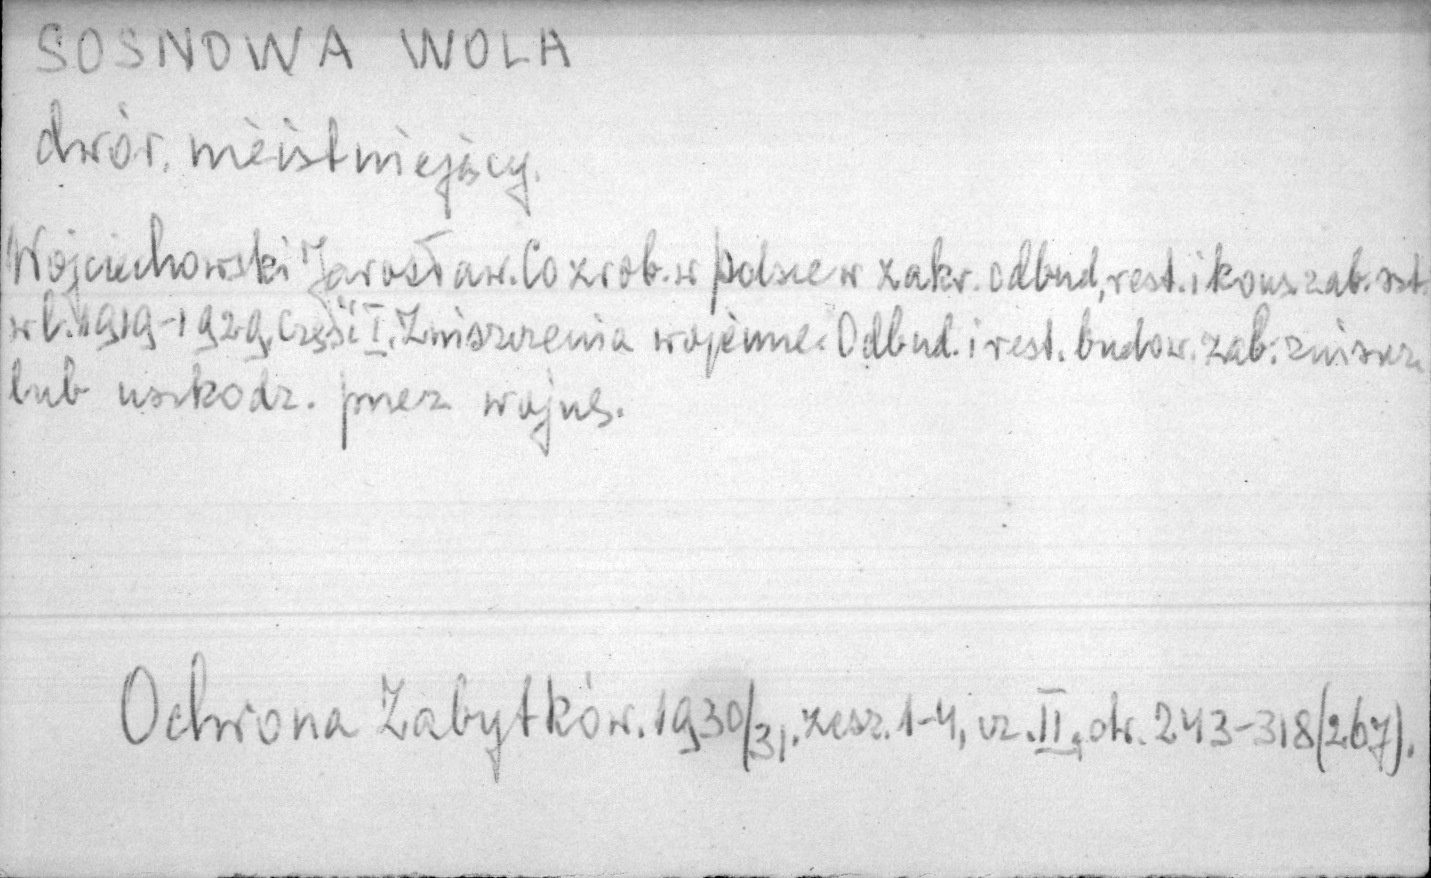 SOSNOWA WOLA
dwór. nieistniejący.
Wojciechowski Jarosław. Co zrob. w Polsce w zakr. odbud., rest. i kons. zab. szt.
w l. 1919-1929. Część I. Zniszczenia wojenne. Odbud. i rest. budow. zab. zniszcz.
lub uszkodz. przez wojnę.
Ochrona Zabytków. 1930/31. zesz. 1-4, cz. II, str. 243-318 (267).